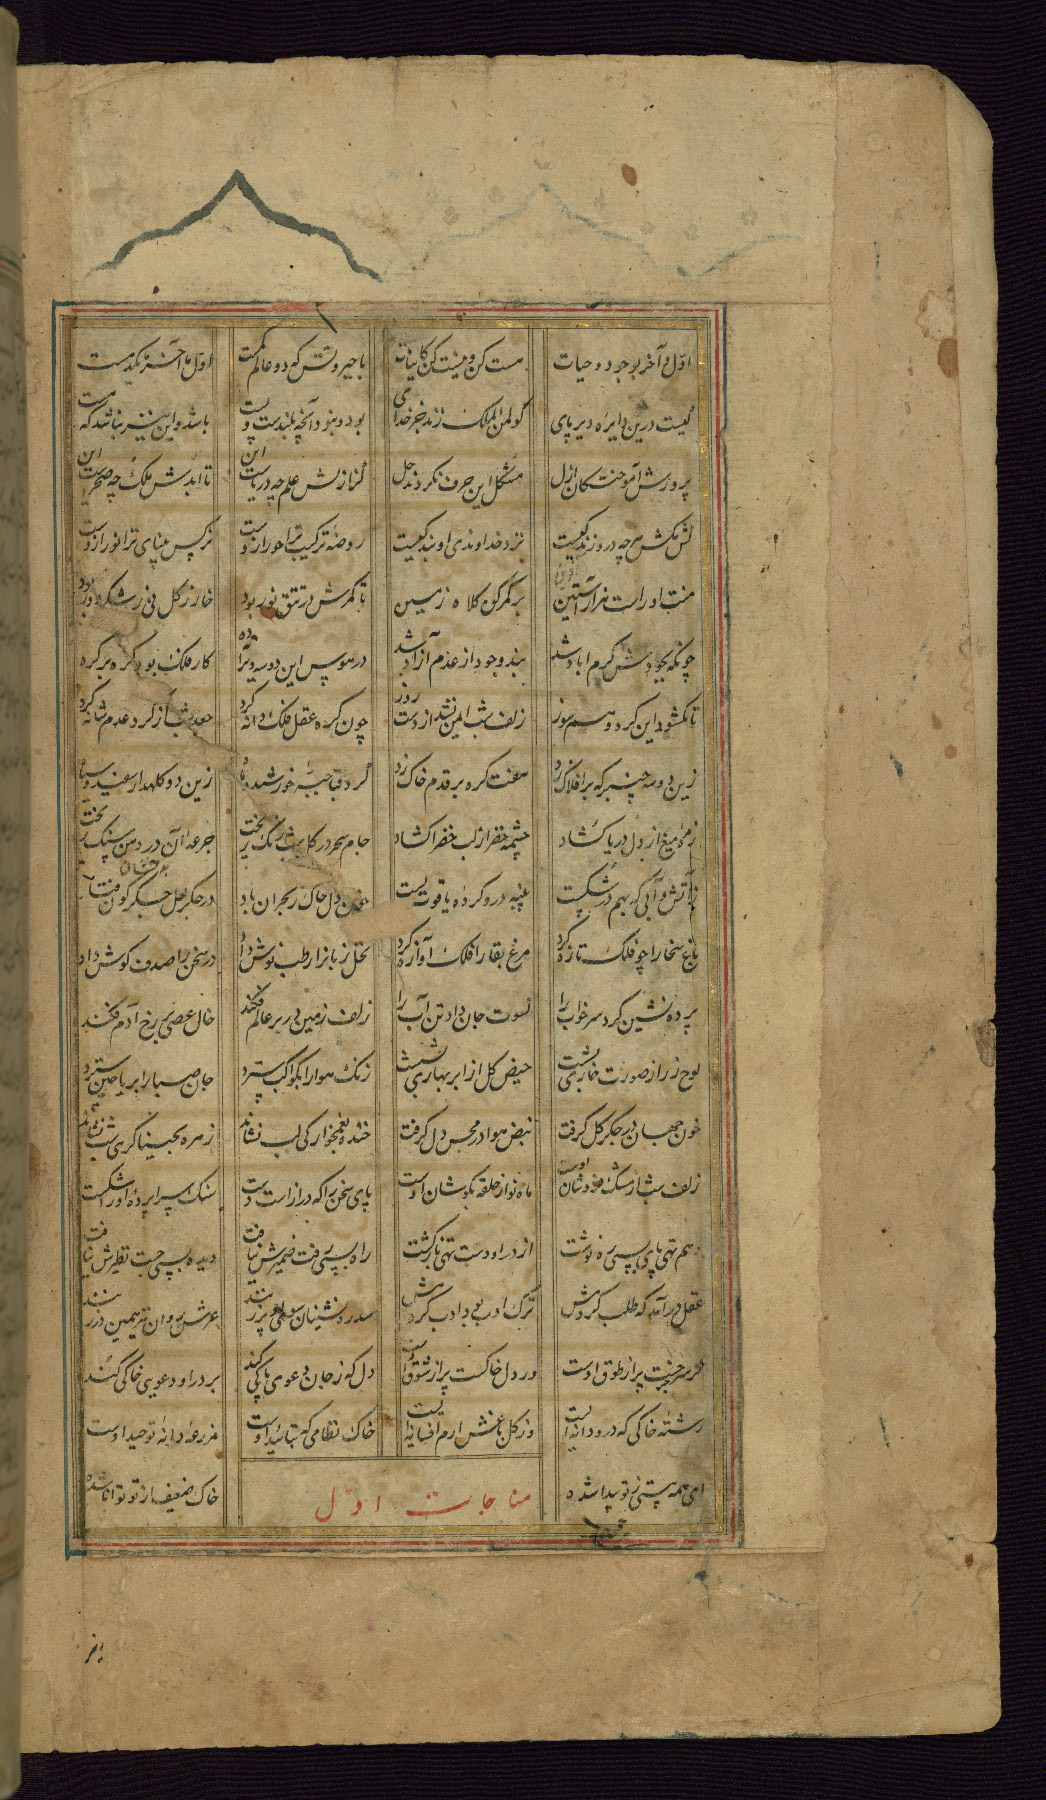 اول و آخر بوجود و حیات هست کن و نیست کن کاینات با جبروتش که دو عالم کمست اول ما آخر ما یکدمست
کیست درین دایره دیر پای کو لمن الملک زند جز خدای بود و نبود آنچه بلندست و پست باشد و این نیز نباشد که هست
پرورش آموختگان ازل مشکل این حرف نکردند حل کز ازلش علم چه دریاست این تا ابدش ملک چه صحراست این
کش مکش هر چه درو زندگیست نزد خداوندی او بندگیست روضه ترکیب ترا حور ازوست نرگس بینای ترا نور ازوست
منت او راست هزار آستین بر کمر کن کلاه زمین تا کرمش در تتق نور بود خار ز گل نی ز شکر دور بود
چونکه بجودش کرم اباد شد بند وجود از عدم آزاد شد در هوس این دو سه ویرانه ده کار فلک بود گره بر گره
تا نکشود این گره وهم سوز زلف شب ایمن نشد از دست روز چون گره عقد فلک دانه کرد جعد شب از گرد عدم شانه کرد
زین دو سه چنبر که بر افلاک زد هفت گره بر قدم خاک زد کرد قبا جبه خورشید و ماه زین دو کلهدار سفید و سیاه
زهره میغ از دل دریا کشاد چشمه خضر از لب خضرا کشاد جام سحر در کل شبرنگ ریخت جرعه آن در دهن سنگ ریخت
ز آتش و آبی که بهم در شکست پیه در و گرده یاقوت بست خون دل خاک ز بحران باد در جگر لعل جگرگون
باغ سخا را چو فلک تازه کرد مرغ بقا را فلک آوازه کرد نخل زبان را رطب نوش داد در سخن را صدف گوش داد
پرده نشین کرد سر خواب را کسوت جان داد تن آب را زلف زمین در بر عالم فکند خال عصی بر رخ آدم فکند
لوح زر از صورت خاری بشست حیض گل از ابر بهاری بشست زنگ هوا را بکواکب سترد جان صبا را بریاحین سپرد
خون جهان در جگر گل گرفت نبض هوا در مجس دل گرفت خنده بغمخوارگی لب نشاند زهره بخنیاگری شب نشاند
زلف شب از مشک فروشان اوست ماه نو از حلقه بگوشان اوست پای سخن را که درازست دست سنگ سراپرده او سر شکست
وهم تهی پای بسی ره نوشت از در او دست تهی بازگشت راه بسی رفت ضمیرش نیافت دیده بسی جست نظیرش نیافت
عقل درآمد که طلب کردمش ترک ادب بود ادب کردمش سدره نشینان سوی او پر زنند عرش روان نیز همین در زنند
گر سر چرخست پر از طوق اوست ور دل خاکست پر از شوق اوست دل که ز جان دعوی پاکی کند بر در او دعوی خاکی کند
رشته خاکی که درو دانه ایست وز گل باغش ارم افسانه ایست خاک نظامی که بتایید اوست مزرعه دانه توحید اوست
ای همه هستی ز تو پیدا شده مناجات اول خاک ضعیف از تو توانا شده